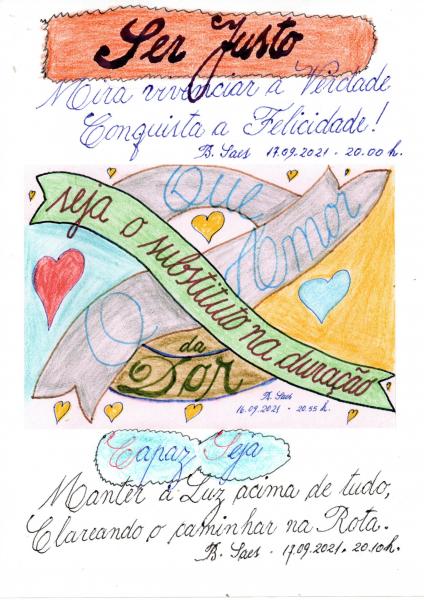 Ser Justo
Mira vivenciar a Verdade
Conquista a Felicidade!
B. Saes 17.09.2021 - 20.00 h.
Que
O Amor
seja o substituto na duração
da
Dor
B. Saes
16.09.2021 - 20.55 h.
Capaz Seja
Manter a Luz acima de tudo,
Clareando o caminhar na Rota.
B. Saes - 17.09.2021 - 20.10 h.